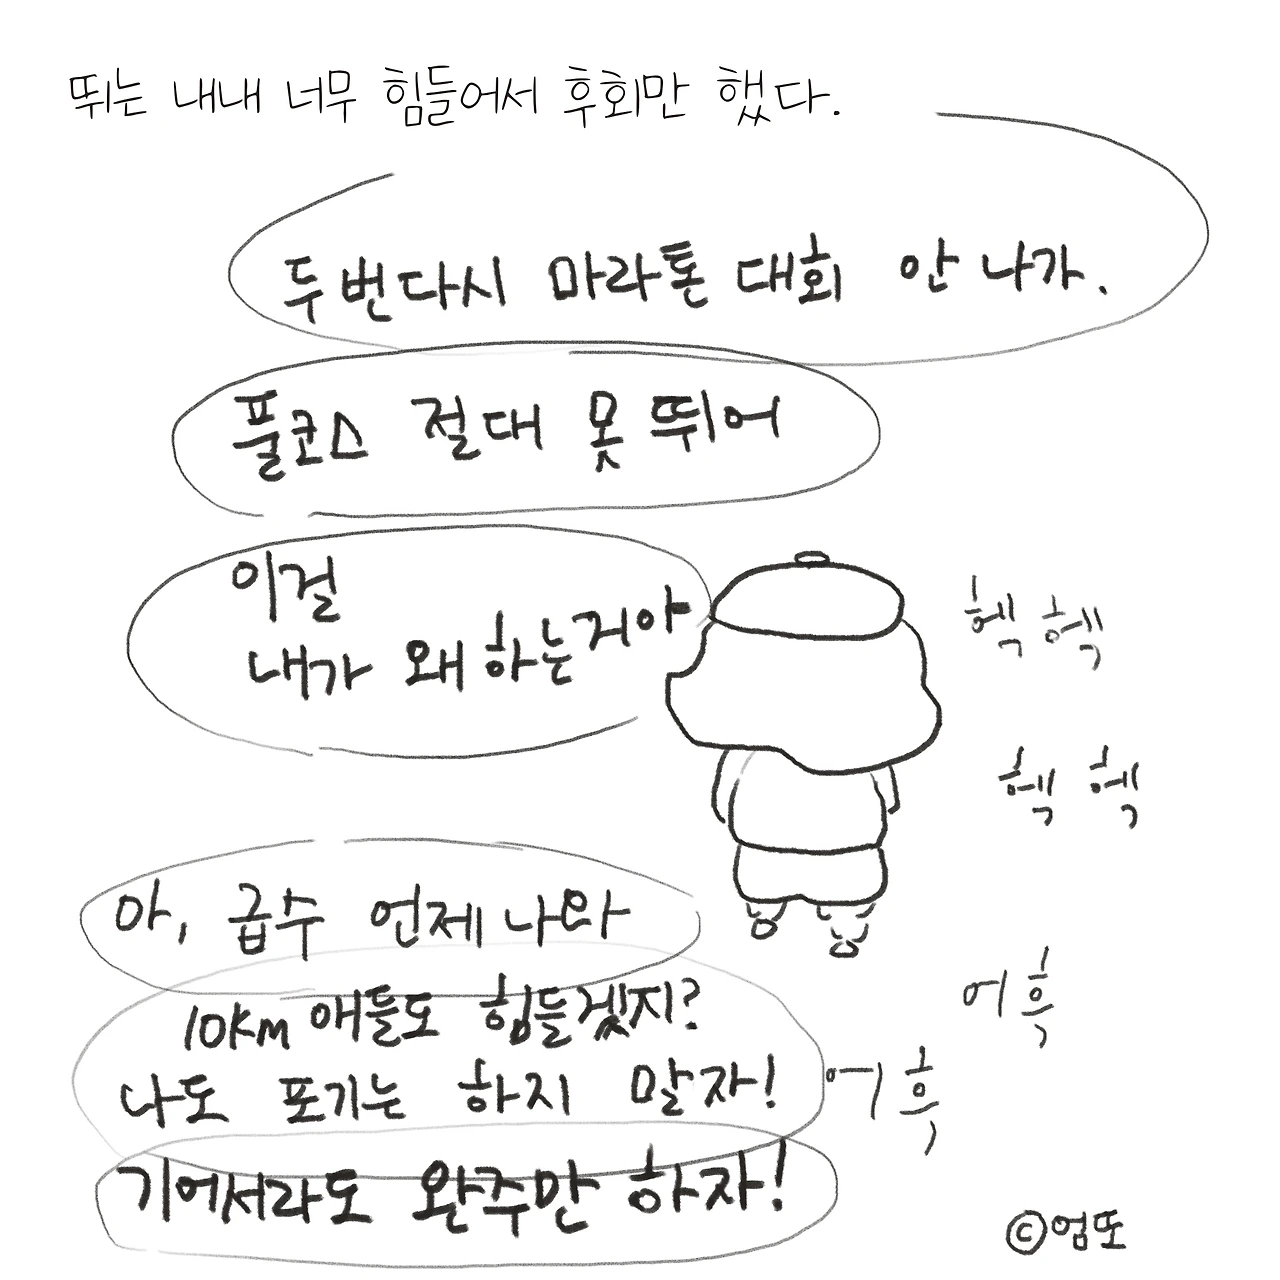 뛰는 내내 너무 힘들어서 후회만 했다.
두번다시 마라톤 대회 안 나가.
풀코스 절대 못 뛰어
이걸
내가 왜 하는거야
헥 헥
헥 헥
아, 급수 언제 나와
10km 애들도 힘들겠지?
나도 포기는 하지 말자!
어흑
어흑
기어서라도 완주만 하자!
©엄또